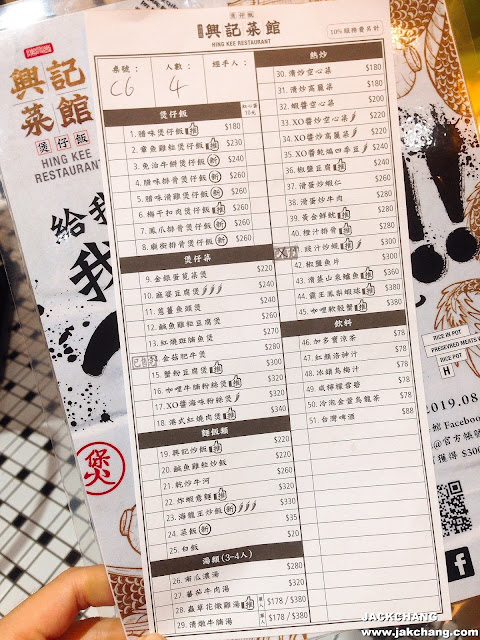 興記菜館
煲仔飯
HING KEE
RESTAURANT
煲仔飯
興記菜館
HING KEE RESTAURANT
10%服務費另計
桌號：
人數：
經手人：
C6
4
煲仔飯
1. 腊味煲仔飯 推 $180
2. 章魚雞粒煲仔飯 推 $230
3. 免治牛餅煲仔飯 新 $240
4. 腊味排骨煲仔飯 新 $260
5. 腊味滑雞煲仔飯 新 $260
6. 梅干扣肉煲仔飯 推 $260
7. 鳳爪排骨煲仔飯 新 $260
8. 廟街排骨煲仔飯 新 $260
煲仔菜
9. 金銀蛋莧菜煲 $220
10. 麻婆豆腐煲 推 $240
11. 蔥薑魚頭煲 $240
12. 鹹魚雞粒豆腐煲 $240
13. 紅燒斑腩魚煲 $270
金菇肥牛煲 $280
15. 蟹粉豆腐煲 推 $300
16. 咖哩牛腩粉絲煲 推 $320
17. XO醬海味粉絲煲 $320
18. 港式紅燒肉煲 推 $340
麵飯類
19. 興記炒飯 推 $220
20. 鹹魚雞粒炒飯 $220
21. 乾炒牛河 $260
22. 炸蝦煎麵 推 $320
23. 海龍王炒飯 新 $330
24. 菜飯 新 $35
25. 白飯 $20
湯類(3-4人)
26. 南瓜濃湯 $280
27. 番茄牛肉湯 $320
28. 蟲草花燉雞湯 推 $178 / $380
29. 清燉牛腩湯 $178 / $380
熱炒
30. 清炒空心菜 $180
31. 清炒高麗菜 $180
32. 蝦醬空心菜 $200
33. XO醬炒空心菜 $200
34. XO醬炒高麗菜 推 $200
35. XO醬乾煸四季豆 $240
36. 椒鹽豆腐 推 $240
37. 滑蛋炒蝦仁 $260
38. 滑蛋炒牛肉 $260
39. 黃金鮮魷 推 $280
40. 橙汁排骨 推 $280
豉汁炒蜆 推 $300
42. 椒鹽魚片 $300
43. 清蒸山泉鱸魚 推 $360
44. 霸王鳳梨蝦球 推 $380
45. 咖哩軟殼蟹 推 $380
飲料
46. 加多寶涼茶 $78
47. 紅顏洛神汁 $78
48. 冰鎮烏梅汁 $78
49. 咸檸檬雪碧 $78
50. 冷泡金萱烏龍茶 $78
51. 台灣啤酒 $88
給我
我
!!
煲
RICE IN POT
PRESERVED MEATS
RICE POT
H
2019.08
Facebook
@官方帳號
獲得 $300
f
JACKCHANG
www.jakchang.com